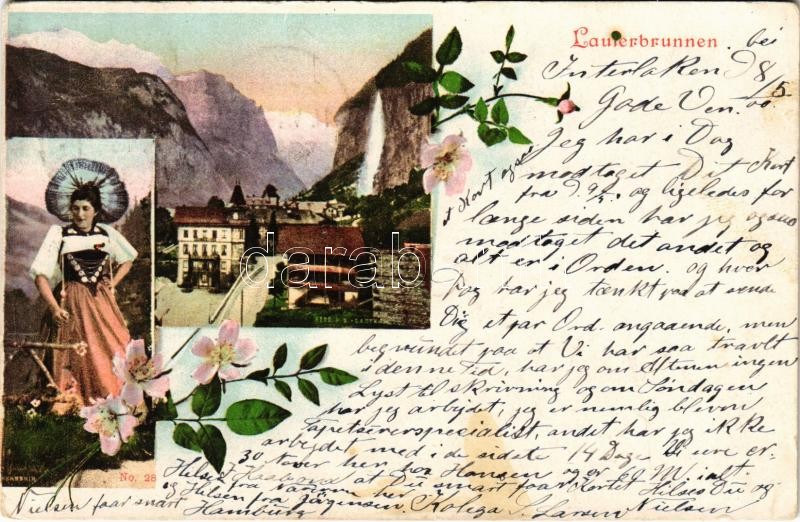 Lauterbrunnen. bei
Interlaken 98/5
Gode Ven. 00
Jeg har i Dag
modtaget Dit Kort
fra og ligeledes for
længe siden har jeg ogsaa
modtaget det andet og
alt er i Orden. og hver
Dag har jeg tænkt paa at sende
Dig et par Ord angaaende, men
begrundet paa at Vi har saa travlt
i denne Tid, har jeg om Aftenen ingen
Lyst til skrivning og om Søndagen
har jeg arbejdet, jeg er nemlig bleven
Tapetsererspecialist, andet har jeg ikke
arbejdet med i de sidste 14 Dage. Vi
30 her hos Hansen og er
Hilsen at Du snart faar Kortet Hilses Du og
og Hilsen fra Jørgensen, Kolega S. Larsen Nielsen
Nielsen faar snart Hamburg
No. 28
darab